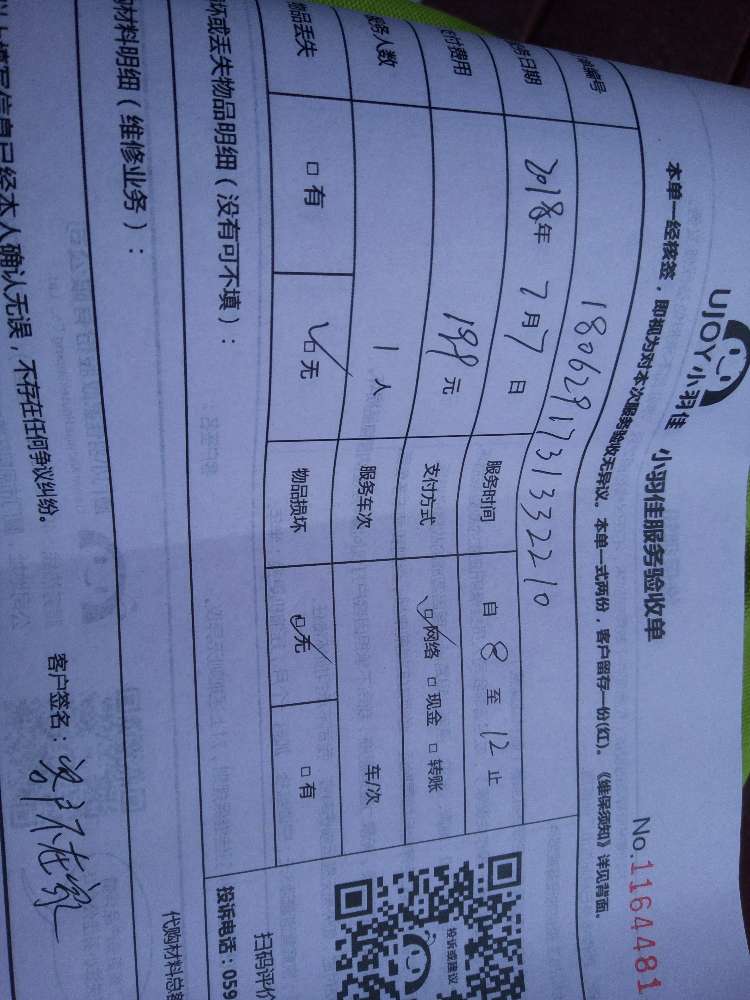 UJOY小羽佳 小羽佳服务验收单
No.1164481
本单一经核签，即视为对本次服务验收无异议。本单一式两份，客户留存一份(红)。《维保须知》详见背面。
编号 1806291731332210
务日期 2018年 7月7日 服务时间 自 8 至 12 止
付费用 199元 支付方式 ☑网络 □现金 □转账
服务人数 1人 服务车次 车/次
物品丢失 □有 ☑无 物品损坏 ☑无 □有
坏或丢失物品明细（没有可不填）：
投诉或建议
扫码评价
投诉电话：059
材料明细（维修业务）：
代购材料总
以上填写信息已经本人确认无误，不存在任何争议纠纷。
客户签名： 客户不在家